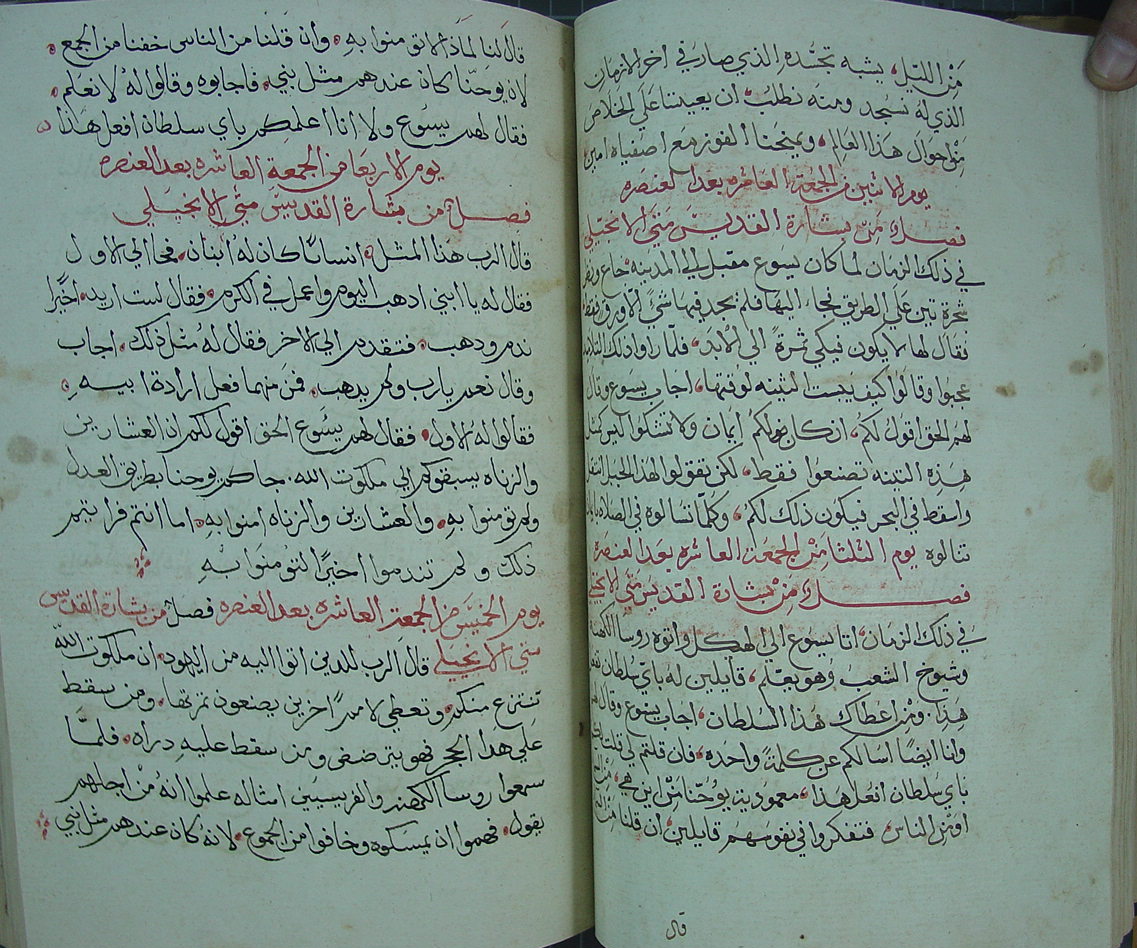 مَن الليل، يشبه تجسّده الذي صار في اخر الازمان
الذي له نسجد ومنه نطلب ان يعيننا علي الخلاص
من احوال هذا العالم، ويمنحنا الفوز مع اصفياه امين
يوم الاثنين من الجمعة العاشره بعد العنصره
فصل من بشارة القديس متي الانجيلي
في ذلك الزمان لما كان يسوع مقبل الي المدينه جاع ونظر
شجرة تين علي الطريق فجاء اليها فلم يجد فيها شي الا ورق فقط
فقال لها لا يكون فيكي ثمرة الي الابد، فلما راوا ذلك التلاميذ
عجبوا وقالوا كيف يبست التينه لوقتها، اجاب يسوع وقال
لهم الحق اقول لكم، ان كان بكم ايمان ولا تشكوا ليس كمثل
هذه التينه تصنعوا فقط، لكن تقولوا لهذا الجبل انتقل
واسقط في البحر فيكون ذلك لكم، وكلما تسالوه في الصلاه بايمان
تنالوه يوم الثلثا من الجمعة العاشره بعد العنصره
فصل من بشارة القديس متي الانجيلي
في ذلك الزمان، اتا يسوع الي الهيكل واتوه روسا الكهنه
وشيوخ الشعب وهو يعلم، قايلين له باي سلطان تفعل
هذا، ومن اعطاك هذا السلطان، اجاب يسوع وقال لهم
وانا ايضا اسالكم عن كلمة واحده، فان قلتم لي قلت لكم
باي سلطان افعل هذا، معمودية يوحنا من اين هي، من السما
او من الناس، فتفكروا في نفوسهم قايلين، ان قلنا من السما
قال
قال لنا لماذا لا تومنوا به، وان قلنا من الناس خفنا من الجمع
لان يوحنا كان عندهم مثل نبي، فاجابوه وقالوا له لا نعلم
فقال لهم يسوع ولا انا اعلمكم باي سلطان افعل هذا
يوم الاربعا من الجمعة العاشره بعد العنصره
فصل من بشارة القديس متي الانجيلي
قال الرب هذا المثل، انسانا كان له ابنان، فجا الي الاول
فقال له يا ابني اذهب اليوم واعمل في الكرم، فقال لست اريد، اخيرا
ندم وذهب، فتقدم الي الاخر فقال له مثل ذلك، اجاب
وقال نعم يارب ولم يذهب، فمن منهما فعل ارادة ابيه
فقالوا له الاول، فقال لهم يسوع الحق اقول لكم ان العشارين
والزناه يسبقوكم الي ملكوت الله، جاكم يوحنا بطريق العدل
ولم تومنوا به، والعشارين والزناه امنوا به، اما انتم فرايتم
ذلك ولم تندموا اخيرا لتومنوا به
يوم الخميس من الجمعة العاشره بعد العنصره فصل من بشارة القديس
متي الانجيلي قال الرب للذين اتوا اليه من اليهود، ان ملكوت الله
تنتزع منكم، وتعطي لامم اخرين يصنعون ثمرتها، ومن سقط
علي هذا الحجر فهو يترضض ومن سقط عليه دراه، فلما
سمعوا روسا الكهنه والفريسيين امثاله علموا انه من اجلهم
يقول، فهموا ان يمسكوه وخافوا من الجموع، لانه كان عندهم مثل نبي